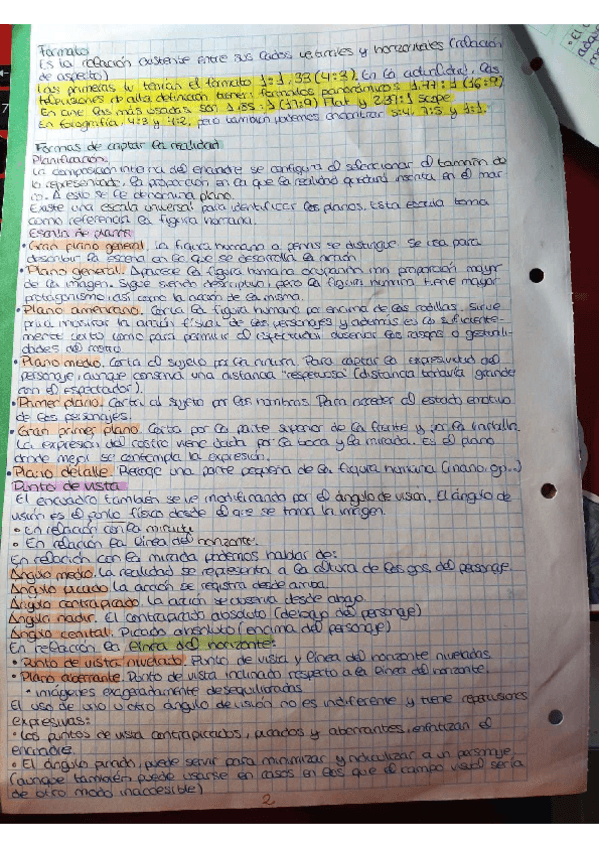 Formato
Es la relación existente entre sus lados verticales y horizontales (relación
de aspecto)
Las primeras tv tenían el formato 1:1,33 (4:3). En la actualidad, las
televisiones de alta definición tienen formatos panorámicos 1,77:1 (16:9)
En cine las más usadas son 1,85:1 (17:9) Flat y 2,39:1 scope.
En fotografía, 4:3 y 4:2, pero también podemos encontrar 5:4, 7:5 y 1:1.
Formas de captar la realidad
Planificación.
La composición interna del encuadre se configura al seleccionar el tamaño de
lo representado, la proporción en la que la realidad quedará inscrita en el mar
co. A esto se le denomina plano.
Existe una escala universal para identificar los planos. Esta escala toma
como referencia la figura humana.
Escala de planos
• Gran plano general. La figura humana a penas se distingue. Se usa para
describir la escena en la que se desarrolla la acción.
• Plano general. Aparece la figura humana ocupando una proporción mayor
de la imagen. Sigue siendo descriptivo, pero la figura humana tiene mayor
protagonismo, así como la acción de la misma.
• Plano americano. Corta la figura humana por encima de las rodillas. Sirve
para mostrar la acción física de los personajes y además es lo suficiente-
mente corto como para permitir al espectador observar los rasgos o gestuali-
dades del rostro.
• Plano medio. Corta el sujeto por la cintura. Para captar la expresividad del
personaje, aunque conserva una distancia "respetuosa" (distancia todavía grande
con el espectador).
• Primer plano. Corta al sujeto por los hombros. Para acceder al estado emotivo
de los personajes.
• Gran primer plano. Corta por la parte superior de la frente y por la barbilla.
La expresión del rostro viene dada por la boca y la mirada. Es el plano
donde mejor se contempla la expresión.
• Plano detalle. Recoge una parte pequeña de la figura humana (mano, ojo...)
Punto de vista
El encuadre también se ve modificando por el ángulo de visión. El ángulo de
visión es el punto físico desde el que se toma la imagen.
• En relación con la mirada
• En relación la línea del horizonte.
En relación con la mirada podemos hablar de:
Ángulo medio. La realidad se representa a la altura de los ojos del personaje
Ángulo picado. La acción se registra desde arriba.
Ángulo contrapicado. La acción se observa desde abajo.
Ángulo nadir. El contrapicado absoluto (debajo del personaje)
Ángulo cenital. Picado absoluto (encima del personaje)
En relación la línea del horizonte:
• Punto de vista nivelado. Punto de vista y línea del horizonte nivelados.
• Plano aberrante. Punto de vista inclinado respecto a la línea del horizonte.
• imágenes exageradamente desequilibradas
El uso de uno u otro ángulo de visión no es indiferente y tiene repercusiones
expresivas:
• Los puntos de vista contrapicados, picados y aberrantes, enfatizan el
encuadre.
• El ángulo picado, puede servir para minimizar y ridiculizar a un personaje
(aunque también puede usarse en casos en los que el campo visual sería
de otro modo inaccesible)
2